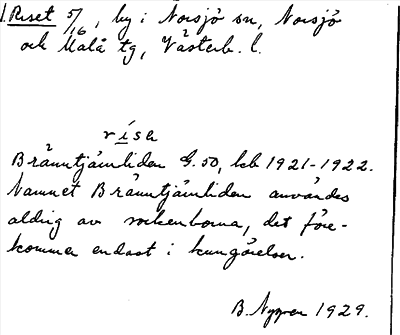 1. Riset 5/16, by i Norsjö sn, Norsjö
och Malå tg, Västerb. l.
rísa
Bränntjärnliden G. 50, kb 1921-1922.
Namnet Bränntjärnliden användes
aldrig av sockenborna, det före-
kommer endast i kungörelser.
B. Nygren 1929.